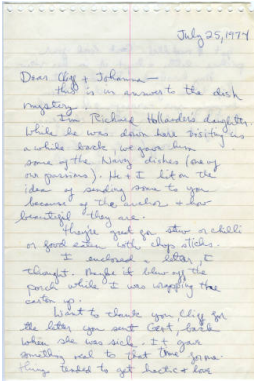 July 25, 1974
Dear Cliff & Johanna—
This is in answer to the dish
mystery.
I'm Richard Hollander's daughter.
While he was down here visiting us
a while back, we gave him
some of the Navy dishes (one of
our passions). He & I hit on the
idea of sending some to you
because of the anchor & how
beautiful they are.
They're great for stew or chili
or good eaten with chop sticks.
I enclosed a letter, I
thought. Maybe it blew off the
porch while I was wrapping the
carton up.
Want to thank you, Cliff for
the letter you sent Gert, back
when she was sick. It gave
something real to that time
things tended to get hectic & lose